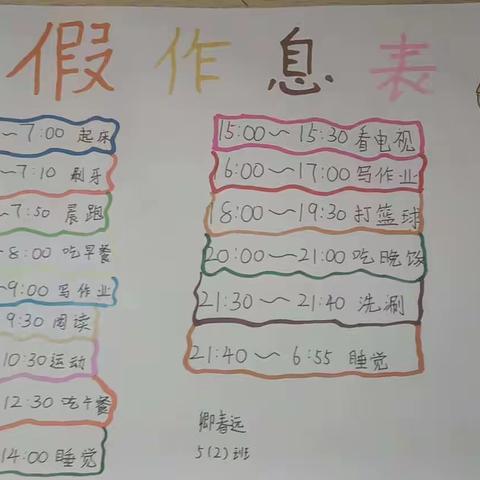 假作息表
~7:00 起床
~7:10 刷牙
~7:50 晨跑
~8:00 吃早餐
~9:00 写作业
9:30 阅读
10:30 运动
12:30 吃午餐
14:00 睡觉
15:00~15:30 看电视
6:00~17:00 写作业
18:00~19:30 打篮球
20:00~21:00 吃晚饭
21:30~21:40 洗涮
21:40~6:55 睡觉
卿春远
5(2)班